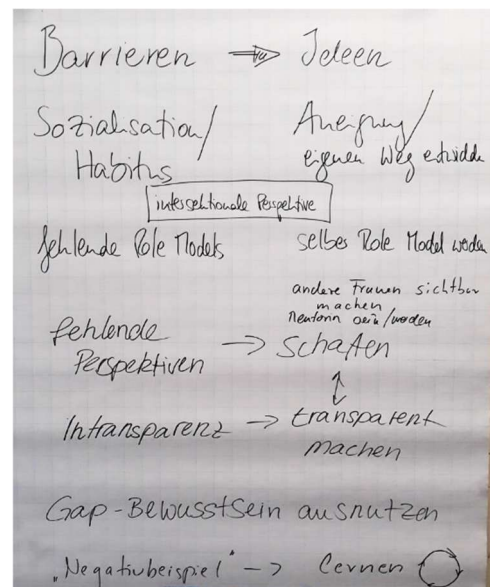 Barrieren → Ideen
Sozialisation/ Aneignung/
Habitus eigenen Weg entwickeln
intersektionale Perspektive
fehlende Role Models selbes Role Model werden
andere Frauen sichtbar
machen
Mentorin sein/werden
fehlende → schaffen
Perspektiven
Intransparenz → transparent
machen
Gap-Bewusstsein ausnutzen
„Negativbeispiel" -> Lernen